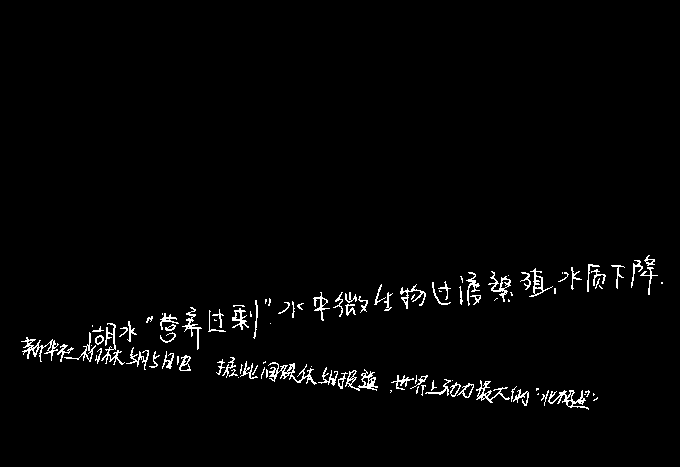 湖水“营养过剩”.水中微生物过度繁殖,水质下降.
新华社柏林5月5日电 据此间媒体5日报道,世界上动力最大的“北极星”